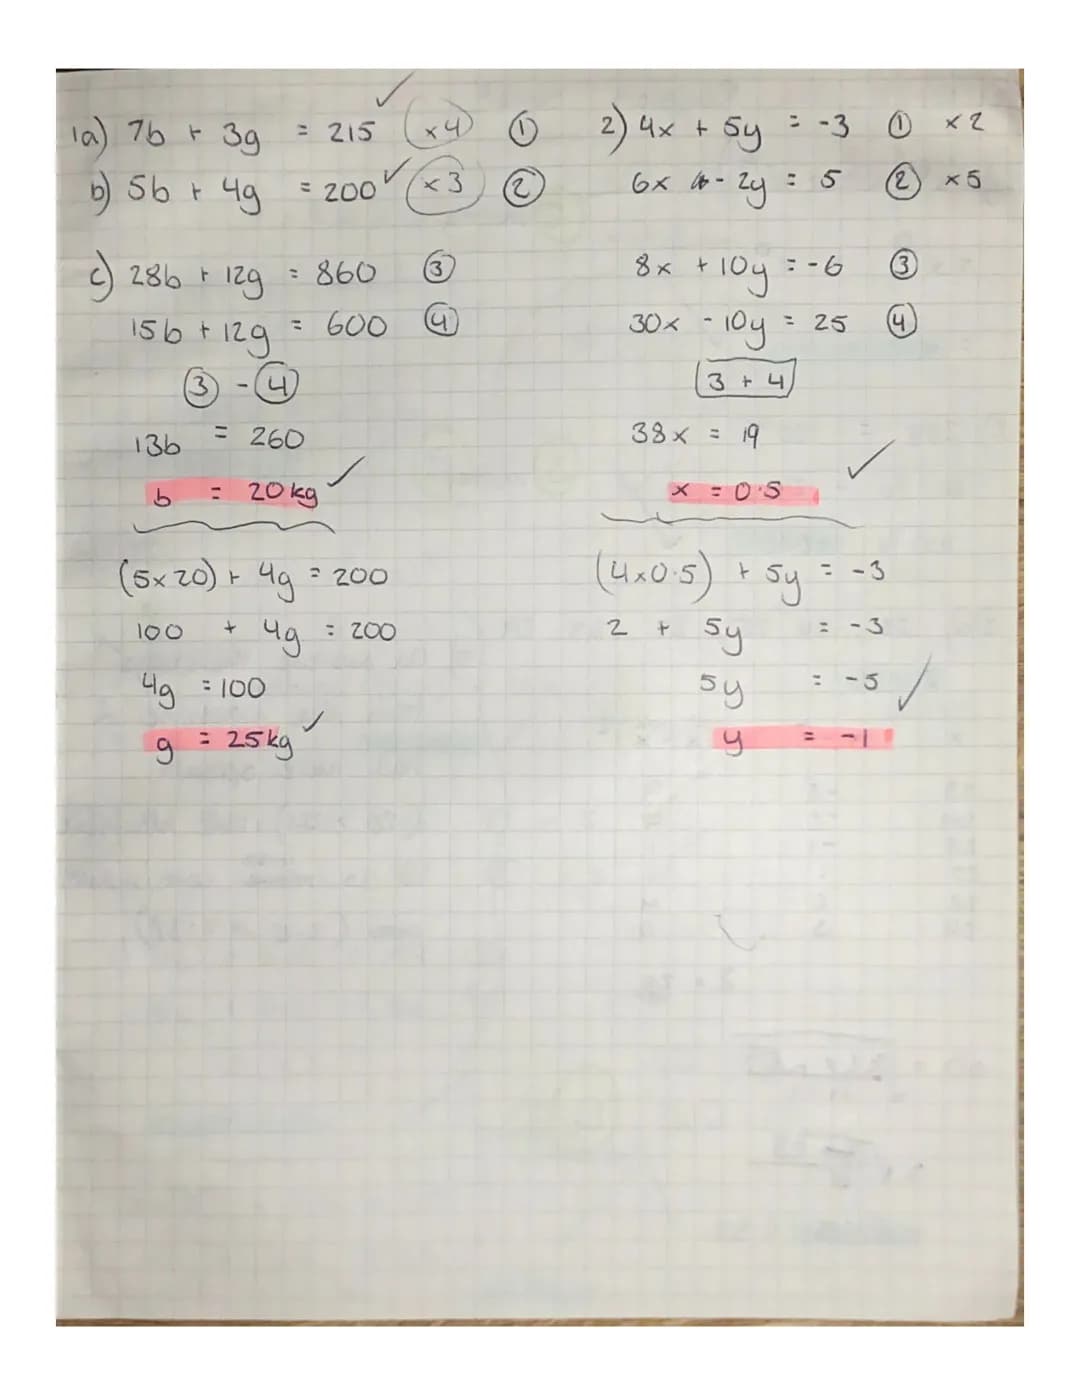 1a) 7b + 3g = 215 ✓ (×4) ①
b) 5b + 4g = 200 ✓ (×3) ②
c) 28b + 12g = 860 ③
15b + 12g = 600 ④
③ - ④
13b = 260
b = 20kg ✓
(5×20) + 4g = 200
100 + 4g = 200
4g = 100
g = 25kg ✓
2) 4x + 5y = -3 ① ×2
6x - 2y = 5 ② ×5
8x + 10y = -6 ③
30x - 10y = 25 ④
3 + 4
38x = 19
x = 0.5 ✓
(4×0.5) + 5y = -3
2 + 5y = -3
5y = -5 ✓
y = -1